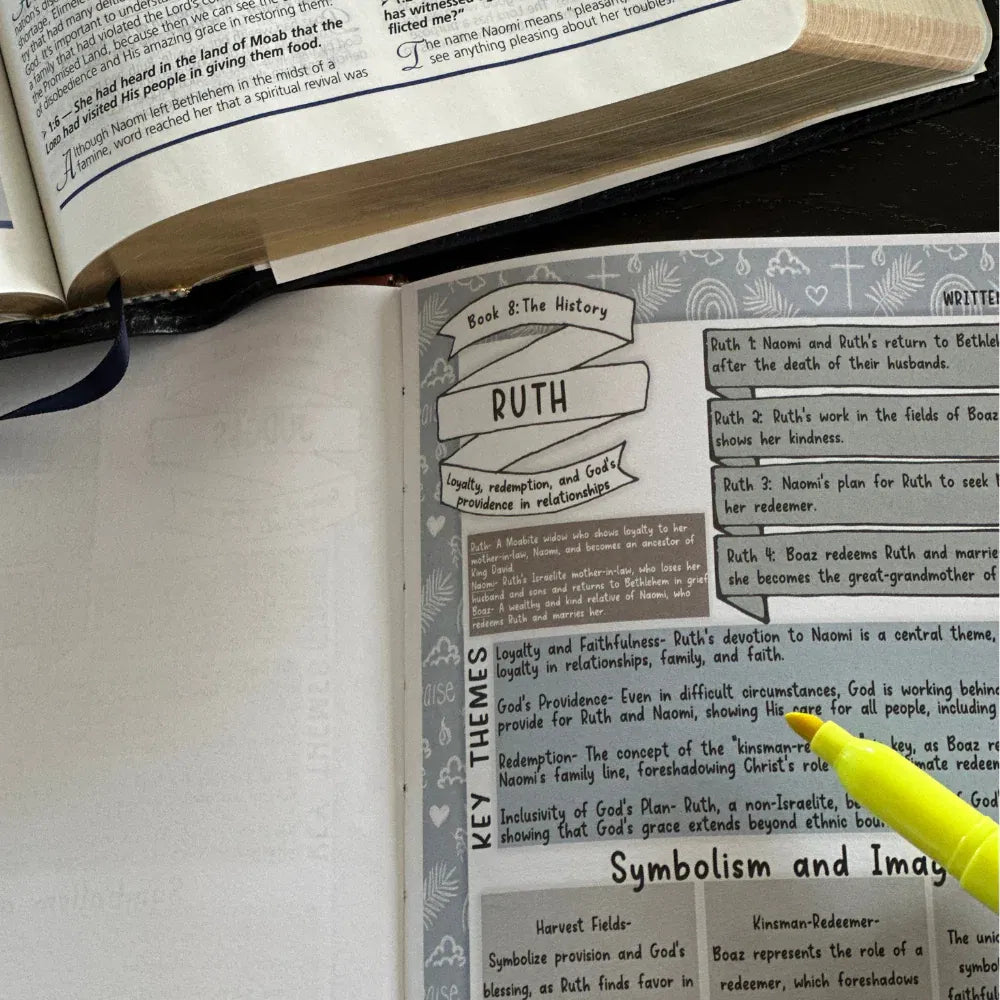 nation's dis
shortage, Elimel
try that had many deities
God. It's important to underst
a family that had violated the Lord's co
the Promised Land, because then we can see the
of disobedience and His amazing grace in restoring them.
➤ 1:6 — She had heard in the land of Moab that the
LORD had visited His people in giving them food.
Although Naomi left Bethlehem in the midst of a
famine, word reached her that a spiritual revival was
has witnessed
flicted me?"
The name Naomi means "pleasant,
see anything pleasing about her troubles.
WRITTE
Book 8: The History
RUTH
Loyalty, redemption, and God's
providence in relationships
Ruth 1: Naomi and Ruth's return to Bethle
after the death of their husbands.
Ruth 2: Ruth's work in the fields of Boaz
shows her kindness.
Ruth 3: Naomi's plan for Ruth to seek
her redeemer.
Ruth 4: Boaz redeems Ruth and marrie
she becomes the great-grandmother of
Ruth- A Moabite widow who shows loyalty to her
mother-in-law, Naomi, and becomes an ancestor of
King David.
Naomi- Ruth's Israelite mother-in-law, who loses her
husband and sons and returns to Bethlehem in grief
Boaz- A wealthy and kind relative of Naomi, who
redeems Ruth and marries her
KEY THEMES
Loyalty and Faithfulness- Ruth's devotion to Naomi is a central theme,
loyalty in relationships, family, and faith.
God's Providence- Even in difficult circumstances, God is working behind
provide for Ruth and Naomi, showing His care for all people, including
Redemption- The concept of the "kinsman-re key, as Boaz re
Naomi's family line, foreshadowing Christ's role imate redeem
Inclusivity of God's Plan- Ruth, a non-Israelite, be of God
showing that God's grace extends beyond ethnic bou
Symbolism and Imag
Harvest Fields-
Symbolize provision and God's
blessing, as Ruth finds favor in
Kinsman-Redeemer-
Boaz represents the role of a
redeemer, which foreshadows
The unio
symbo
faithful